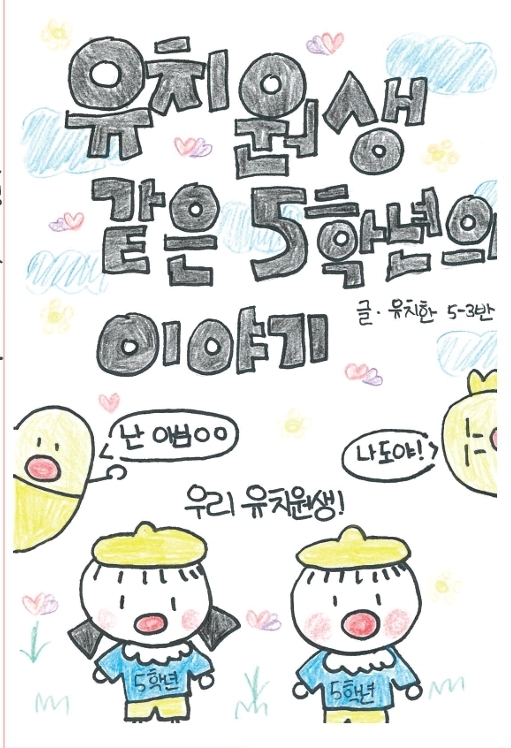 유치원생
같은 5학년의
이야기
글· 유치한 5-3반
난 아빱ㅇㅇ
나도야!
우리 유치원생!
5학년
5학년